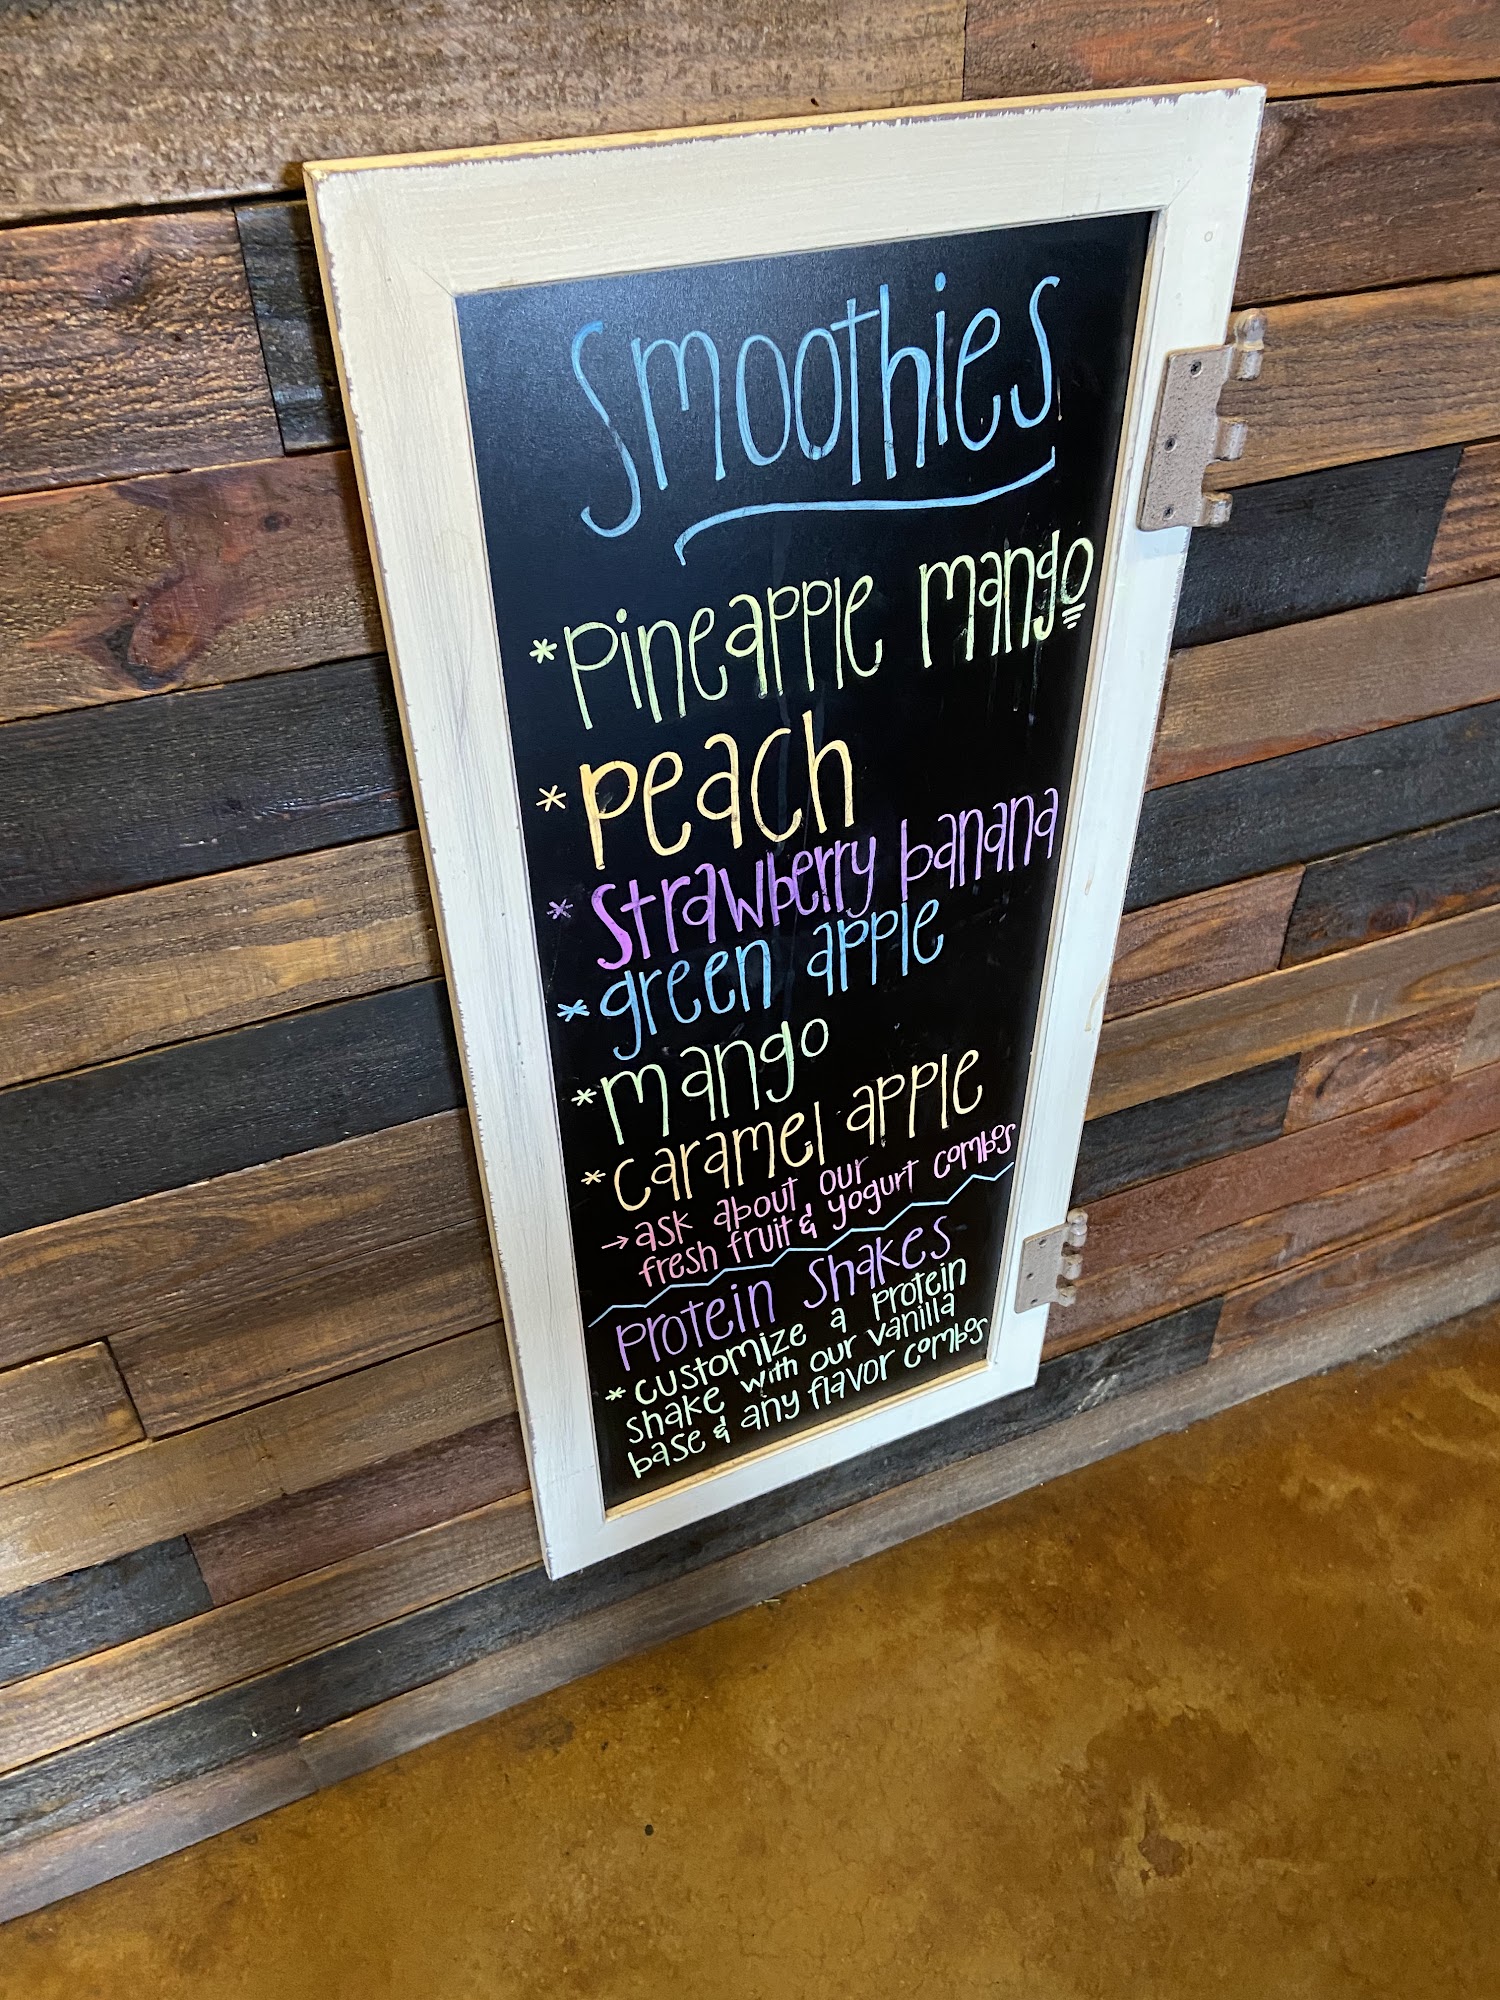 Smoothies
*pineapple mango
*peach
*strawberry banana
*green apple
*mango
*caramel apple
→ask about our
fresh fruit & yogurt combos
Protein Shakes
*customize a protein
shake with our vanilla
base & any flavor combos